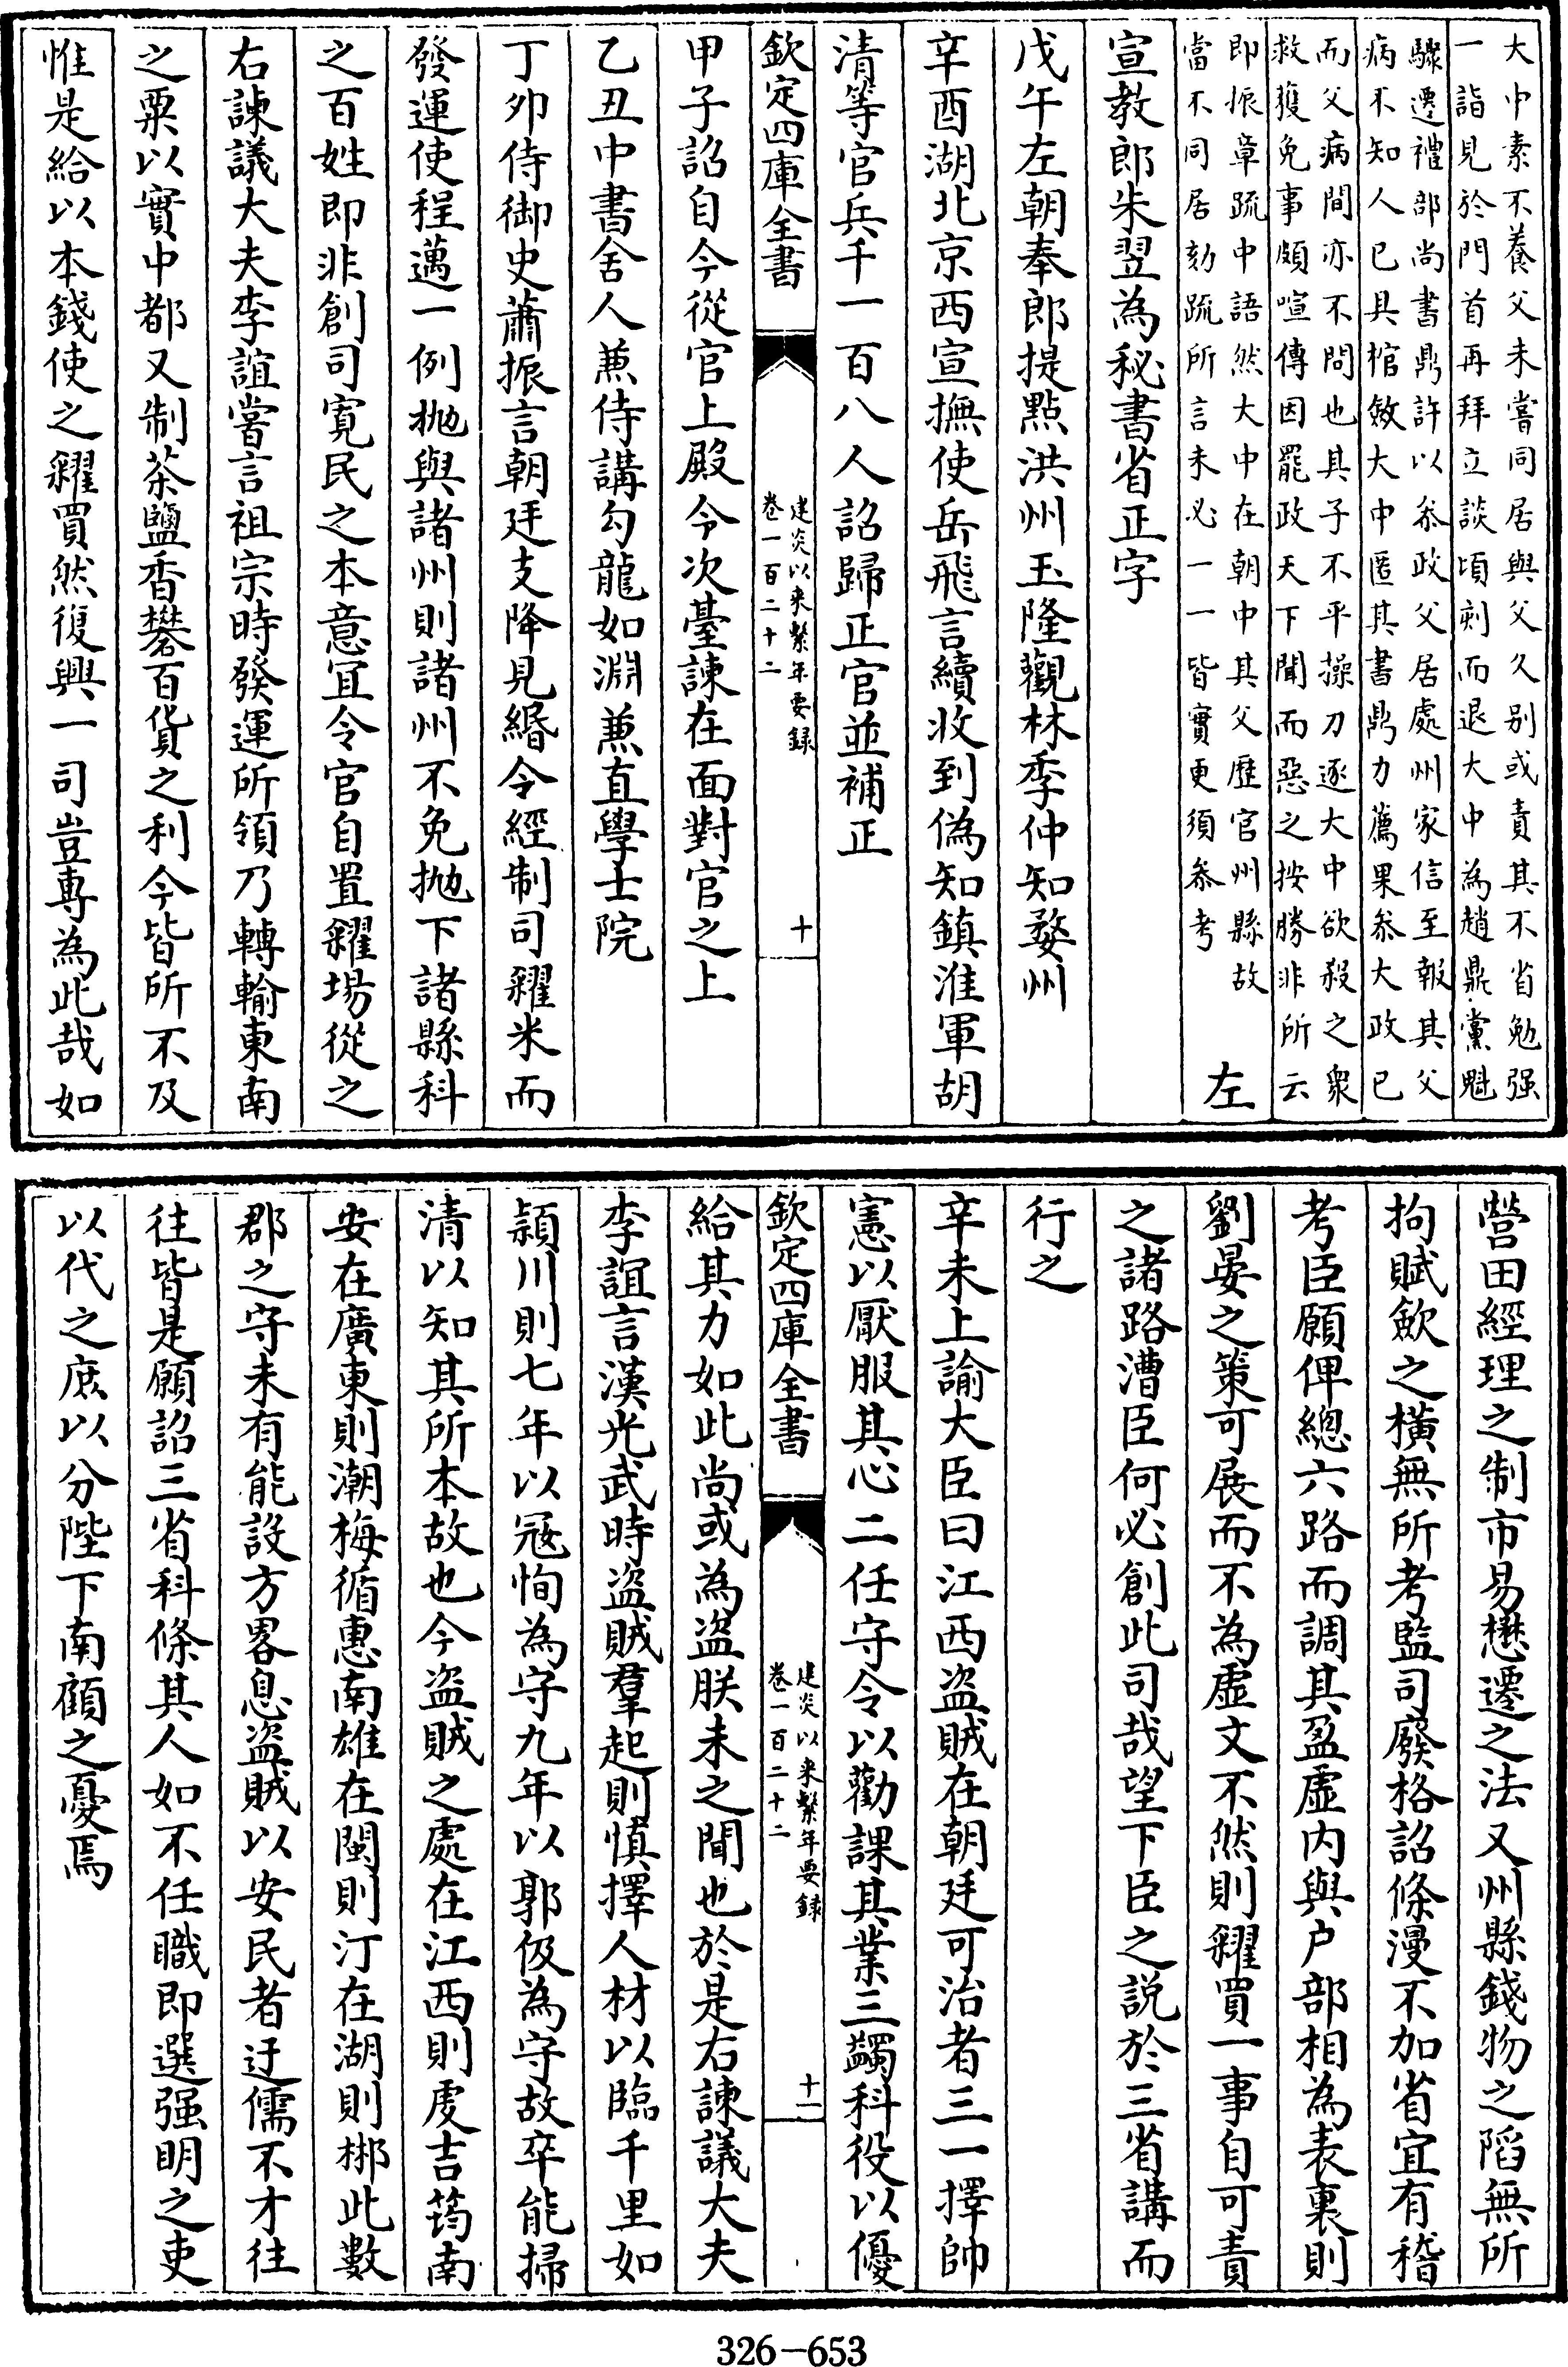 大中素不養父未嘗同居與父久别或責其不省勉强
一詣見於門首再拜立談頃刻而退大中為趙鼎黨魁
驟遷禮部尚書鼎許以叅政父居處州家信至報其父
病不知人已具棺斂大中匿其書鼎力薦果叅大政已
而父病間亦不問也其子不平操刀逐大中欲殺之衆
救獲免事頗喧傳因罷政天下聞而惡之按勝非所云
即振章疏中語然大中在朝中其父歴官州縣故
當不同居劾疏所言未必一一皆實更須叅考
左
宣教郎朱翌為秘書省正字
戊午左朝奉郎提點洪州玉隆觀林季仲知婺州
辛酉湖北京西宣撫使岳飛言續收到偽知鎮淮軍胡
清等官兵千一百八人詔歸正官並補正
欽定四庫全書
建炎以來繫年要録
卷一百二十二
十
甲子詔自今從官上殿令次臺諫在面對官之上
乙丑中書舍人兼侍講勾龍如淵兼直學士院
丁卯侍御史蕭振言朝廷支降見緡令經制司糴米而
發運使程邁一例拋與諸州則諸州不免拋下諸縣科
之百姓即非創司寛民之本意宜令官自置糴場從之
右諫議大夫李誼嘗言祖宗時發運所領乃轉輸東南
之粟以實中都又制茶鹽香礬百貨之利今皆所不及
惟是給以本錢使之糴買然復興一司豈専為此哉如
營田經理之制市易懋遷之法又州縣錢物之䧟無所
拘賦歛之橫無所考監司廢格詔條漫不加省宜有稽
考臣願俾總六路而調其盈虛内與户部相為表裏則
劉晏之策可展而不為虛文不然則糴買一事自可責
之諸路漕臣何必創此司哉望下臣之説於三省講而
行之
辛未上諭大臣曰江西盜賊在朝廷可治者三一擇帥
憲以厭服其心二任守令以勸課其業三蠲科役以優
欽定四庫全書
建炎以來繫年要録
卷一百二十二
十一
給其力如此尚或為盜朕未之聞也於是右諫議大夫
李誼言漢光武時盜賊羣起則慎擇人材以臨千里如
潁川則七年以冦恂為守九年以郭伋為守故卒能掃
清以知其所本故也今盜賊之處在江西則䖍吉筠南
安在廣東則潮梅循惠南雄在閩則汀在湖則郴此數
郡之守未有能設方畧息盜賊以安民者迂儒不才往
往皆是願詔三省科條其人如不任職即選强明之吏
以代之庶以分陛下南顧之憂焉
326-653